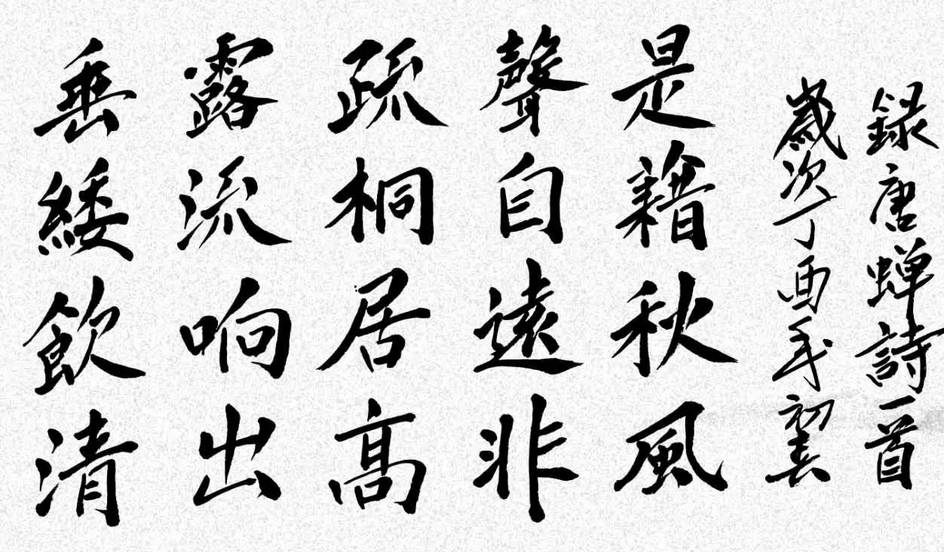 垂緌飲清
露流响出
疏桐居高
聲自遠非
是藉秋風
録唐蝉詩一首
歲次丁酉年初